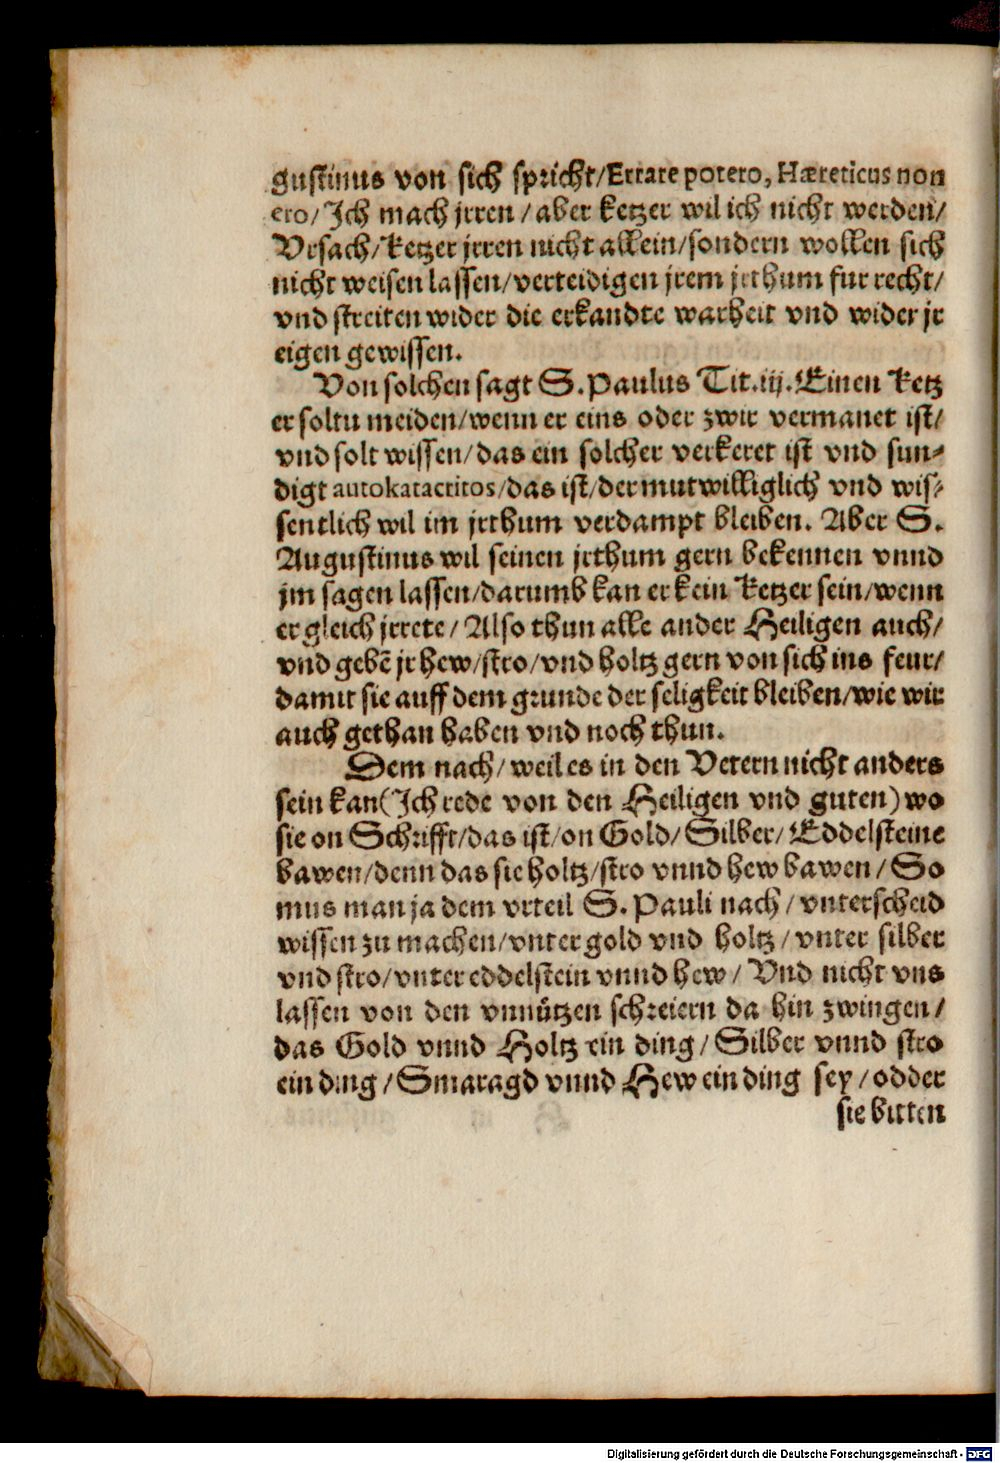 gustinus von sich spricht/Errare potero, Hæreticus non
ero/Ich mach jrren/aber ketzer wil ich nicht werden/
Vrsach/ketzer jrren nicht allein/sondern wollen sich
nicht weisen lassen/verteidigen jrem jrthum fur recht/
vnd streiten wider die erkandte warheit vnd wider jr
eigen gewissen.
Von solchen sagt S. Paulus Tit. iij. Einen ketz
er soltu meiden/wenn er eins oder zwir vermanet ist/
vnd solt wissen/das ein solcher verkeret ist vnd sun-
digt autokatacritos/das ist/der mutwilliglich vnd wis-
sentlich wil im jrthum verdampt bleiben. Aber S.
Augustinus wil seinen jrthum gern bekennen vnnd
jm sagen lassen/darumb kan er kein ketzer sein/wenn
er gleich jrrete/Also thun alle ander Heiligen auch/
vnd gebē jr hew/stro/vnd holtz gern von sich ins feur/
damit sie auff dem grunde der seligkeit bleiben/wie wir
auch gethan haben vnd noch thun.
Dem nach/weil es in den Vetern nicht anders
sein kan(Ich rede von den Heiligen vnd guten)wo
sie on Schrifft/das ist/on Gold/Silber/Eddelsteine
bawen/denn das sie holtz/stro vnnd hew bawen/So
mus man ja dem vrteil S. Pauli nach/vnterscheid
wissen zu machen/vnter gold vnd holtz/vnter silber
vnd stro/vnter eddelstein vnnd hew/Vnd nicht vns
lassen von den vnnützen schreiern da hin zwingen/
das Gold vnnd Holtz ein ding/Silber vnnd stro
ein ding/Smaragd vnnd Hew ein ding sey/odder
sie bitten
Digitalisierung gefördert durch die Deutsche Forschungsgemeinschaft - DFG